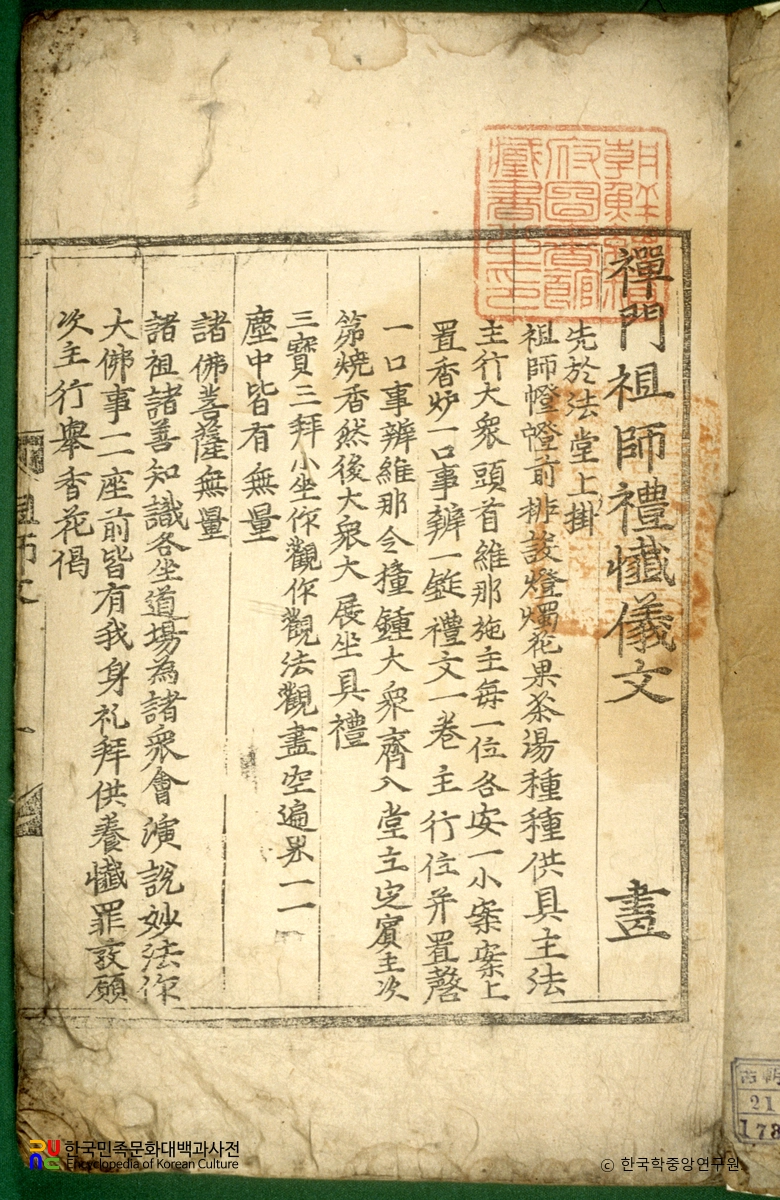 禪門祖師禮懺儀文 晝
先於法堂上掛
祖師幀幀前排設燈燭花果茶湯種種供具主法
主行大衆頭首維那施主每一位各安一小案案上
置香炉一口事辦一錠禮文一卷主行位并置磬
一口事辦維那令撞鍾大衆齊入堂立定賓主次
第燒香然後大衆大展坐具禮
三寶三拜小坐作觀作觀法觀盡空遍界一一
塵中皆有無量
諸佛菩薩無量
諸祖諸善知識各坐道場為諸衆會演說妙法作
大佛事二座前皆有我身礼拜供養懺罪發願
次主行舉香花偈
朝鮮總督府圖書館藏書之印
한국민족문화대백과사전
Encyclopedia of Korean Culture
© 한국학중앙연구원
古朝
21
178